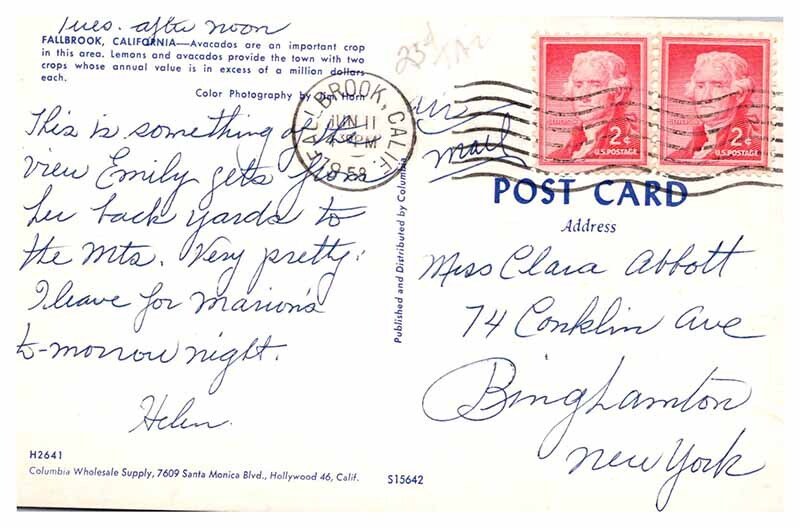 Tues. after noon
FALLBROOK, CALIFORNIA—Avocados are an important crop
in this area. Lemons and avocados provide the town with two
crops whose annual value is in excess of a million dollars
each.
Color Photography by Jim Horn
This is something of the
view Emily gets from
her back yards to
the Mts. Very pretty.
I leave for Marion's
to-morrow night.
Helen.
H2641
Columbia Wholesale Supply, 7609 Santa Monica Blvd., Hollywood 46, Calif.
S15642
Published and Distributed by Columbia
FALLBROOK, CALIF.
JUN 11
PM
air
mail
2¢
U.S. POSTAGE
2¢
U.S. POSTAGE
POST CARD
Address
Miss Clara Abbott
74 Conklin Ave
Binghamton
New York